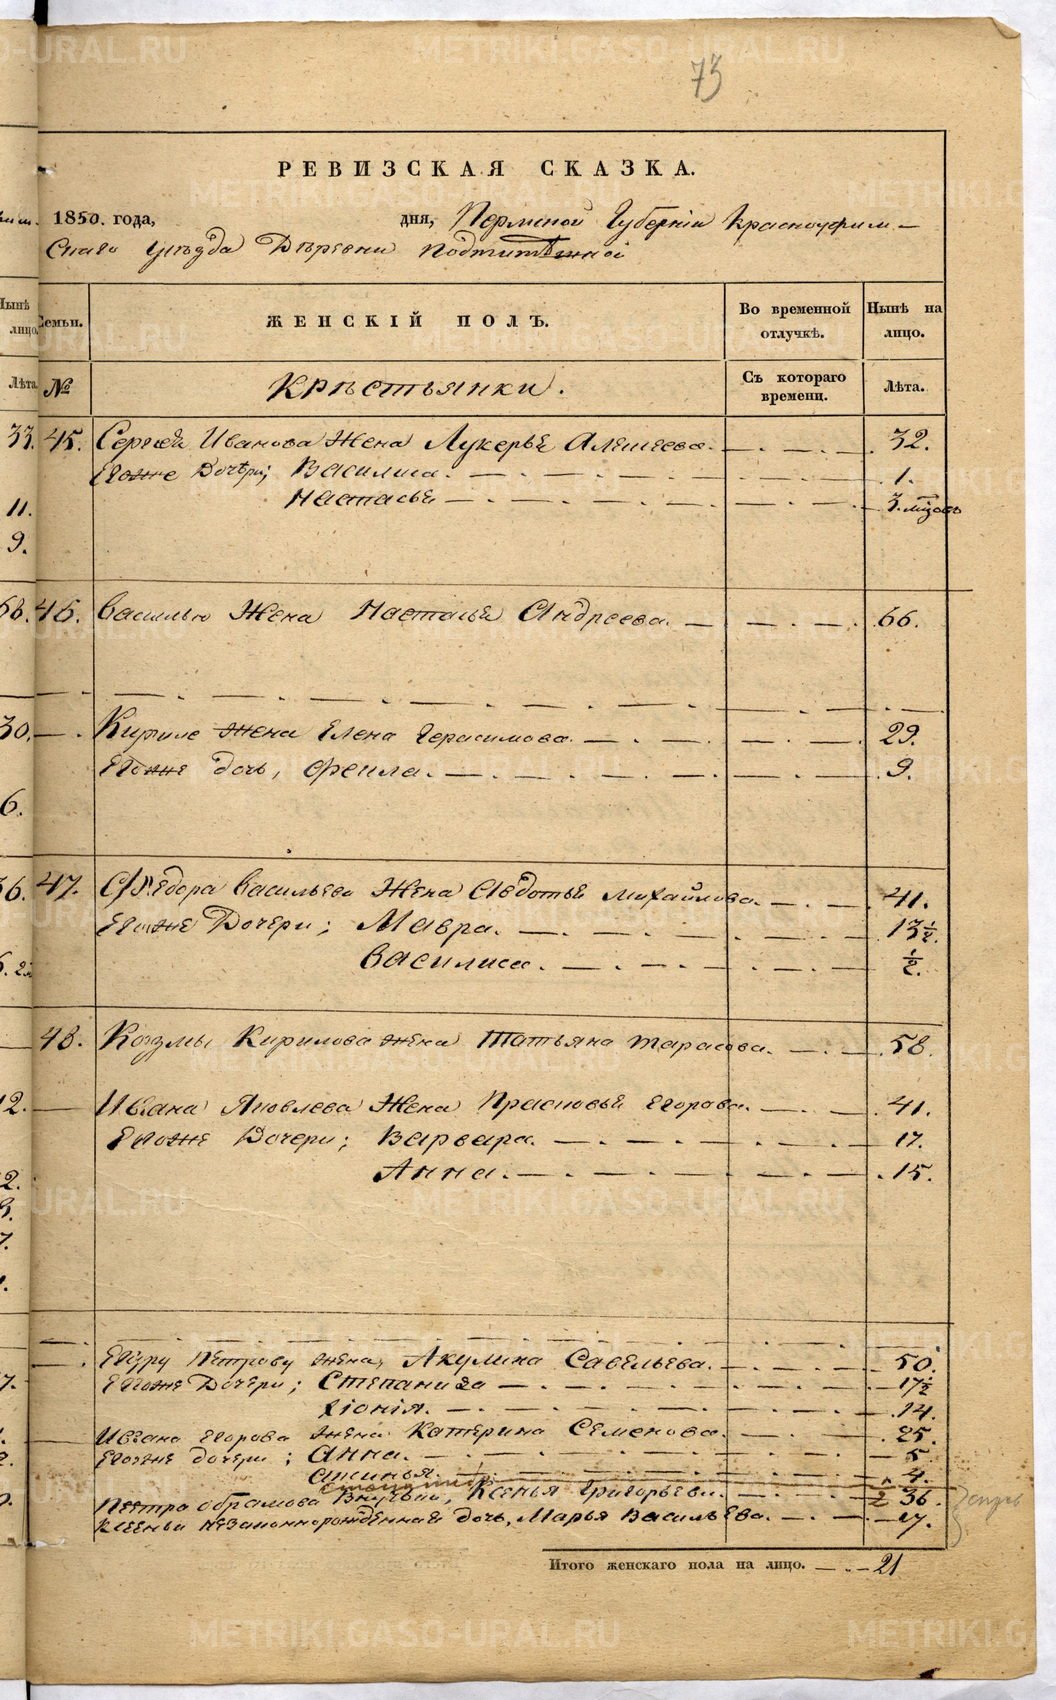 73
РЕВИЗСКАЯ СКАЗКА.
1850. года, дня, Пермской Губерніи Красноуфим-
скаго уѣзда Деревни
Нынѣ лицо. Семьи. ЖЕНСКІЙ ПОЛЪ. Во временной отлучкѣ. Нынѣ на лицо.
Лѣта. № Крестьянки. Съ котораго времени. Лѣта.
33. 45. Сергея Иванова жена Лукерья Алексеева. 32.
Егоже Дочери; Василиса. 1.
11. Настасья 3. мѣсяц
9.
68. 46. Василью Жена Настасья Андреева. 66.
30. Кириле жена Елена Герасимова. 29.
Егоже дочь, Фекла. 9.
6.
36. 47. Федора Васильева Жена Авдотья Михайлова. 41.
Егоже Дочери; Мавра. 13 1/2.
Василиса. 1/2.
48. Козмы Кирилова жена Татьяна Тарасова. 58.
12. Ивана Яковлева Жена Прасковья Егорова. 41.
Егоже Дочери; Варвара. 17.
Анна. 15.
Егору Петрову жена, Акулина Савельева. 50.
Егоже Дочери; Степанида 17 1/2
Хіонія. 14.
Ивана Егорова жена Катерина Семенова. 25.
Егоже дочери; Анна. 5.
Аксинья. 4.
Петра Абрамова Внучька, Ксенья Григорьева. 36.
Ксеньи незаконнорожденная дочь, Марья Васильева. 17.
Итого женскаго пола на лицо. 21
METRIKI.GASO-URAL.RU